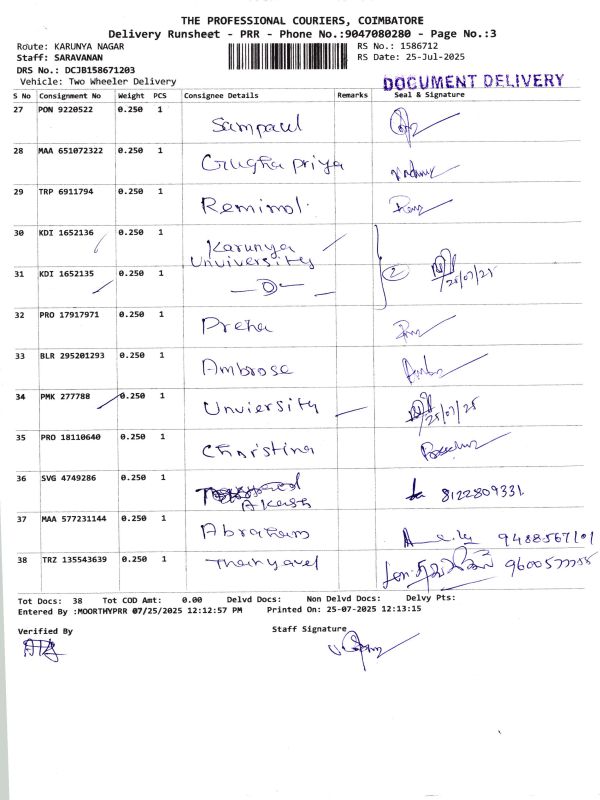 THE PROFESSIONAL COURIERS, COIMBATORE
Delivery Runsheet - PRR - Phone No.:9047080280 - Page No.:3
Route: KARUNYA NAGAR
RS No.: 1586712
Staff: SARAVANAN
RS Date: 25-Jul-2025
DRS No.: DCJB158671203
Vehicle: Two Wheeler Delivery
DOCUMENT DELIVERY
S No Consignment No Weight PCS Consignee Details Remarks Seal & Signature
27 PON 9220522 0.250 1 Sampaul
28 MAA 651072322 0.250 1 priya
29 TRP 6911794 0.250 1 Remimol
30 KDI 1652136 0.250 1 Karunya
Unviversity
31 KDI 1652135 0.250 1 2 25/07/25
32 PRO 17917971 0.250 1 Preha
33 BLR 295201293 0.250 1 Ambrose
34 PMK 277788 0.250 1 Unviersity 25/07/25
35 PRO 18110640 0.250 1 Christina
36 SVG 4749286 0.250 1 Akash 8122809331
37 MAA 577231144 0.250 1 Abraham 9488567101
38 TRZ 135543639 0.250 1
Tot Docs: 38 Tot COD Amt: 0.00 Delvd Docs: Non Delvd Docs: Delvy Pts:
Entered By :MOORTHYPRR 07/25/2025 12:12:57 PM Printed On: 25-07-2025 12:13:15
Verified By
Staff Signature